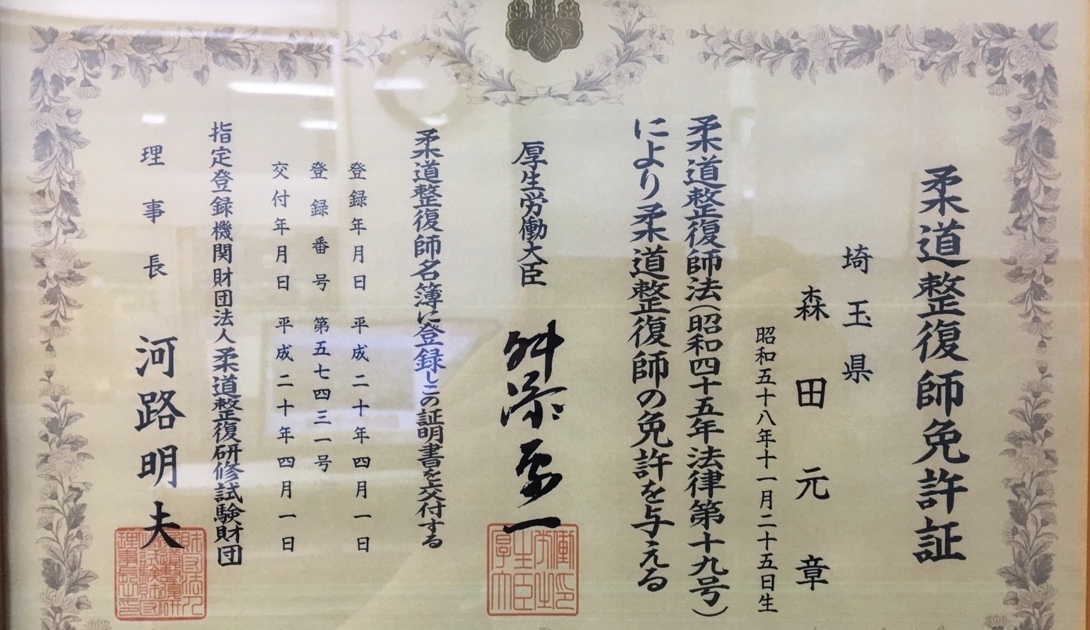 柔道整復師免許証
埼玉県
森田元章
昭和五十八年十一月二十五日生
柔道整復師法(昭和四十五年法律第十九号)
により柔道整復師の免許を与える
厚生労働大臣 舛添要一
柔道整復師名簿に登録しこの証明書を交付する
登録年月日 平成二十年四月一日
登録番号 第五七四三一号
交付年月日 平成二十年四月一日
指定登録機関財団法人柔道整復研修試験財団
理事長 河路明夫